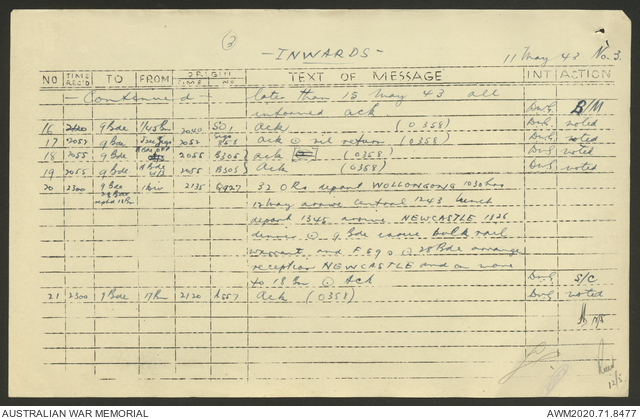 ③
- INWARDS -
11 May 43 No. 3.
NO TIME REC'D TO FROM ORIGIN TIME NO. TEXT OF MESSAGE INT ACTION
- Continued - later than 15 May 43 all
informed ack DvG B/M
16 9 Bde 2040 Ack (0358) DvG noted
17 2052 9 Bde 2052 ack @ nil return (0358) DvG noted
18 2055 9 Bde 2055 B305 ack (0358) DvG noted
19 2055 9 Bde 2055 B305 Ack (0358) DvG noted
20 2300 9 Bde 1 Div 2135 Q927 32 ORs depart WOLLONGONG 1030 hrs
12 May arrive Central 1243 lunch
depart 1345 arrive NEWCASTLE 1826
dinner @ 9 Bde issue bulk rail
warrant and @ 28 Bde arrange
reception NEWCASTLE and on move
to 18 Bn @ Ack DvG S/C
21 2300 9 Bde 17 Bn 2120 A557 Ack (0358) DvG noted
12/5
AUSTRALIAN WAR MEMORIAL
AWM2020.71.8477